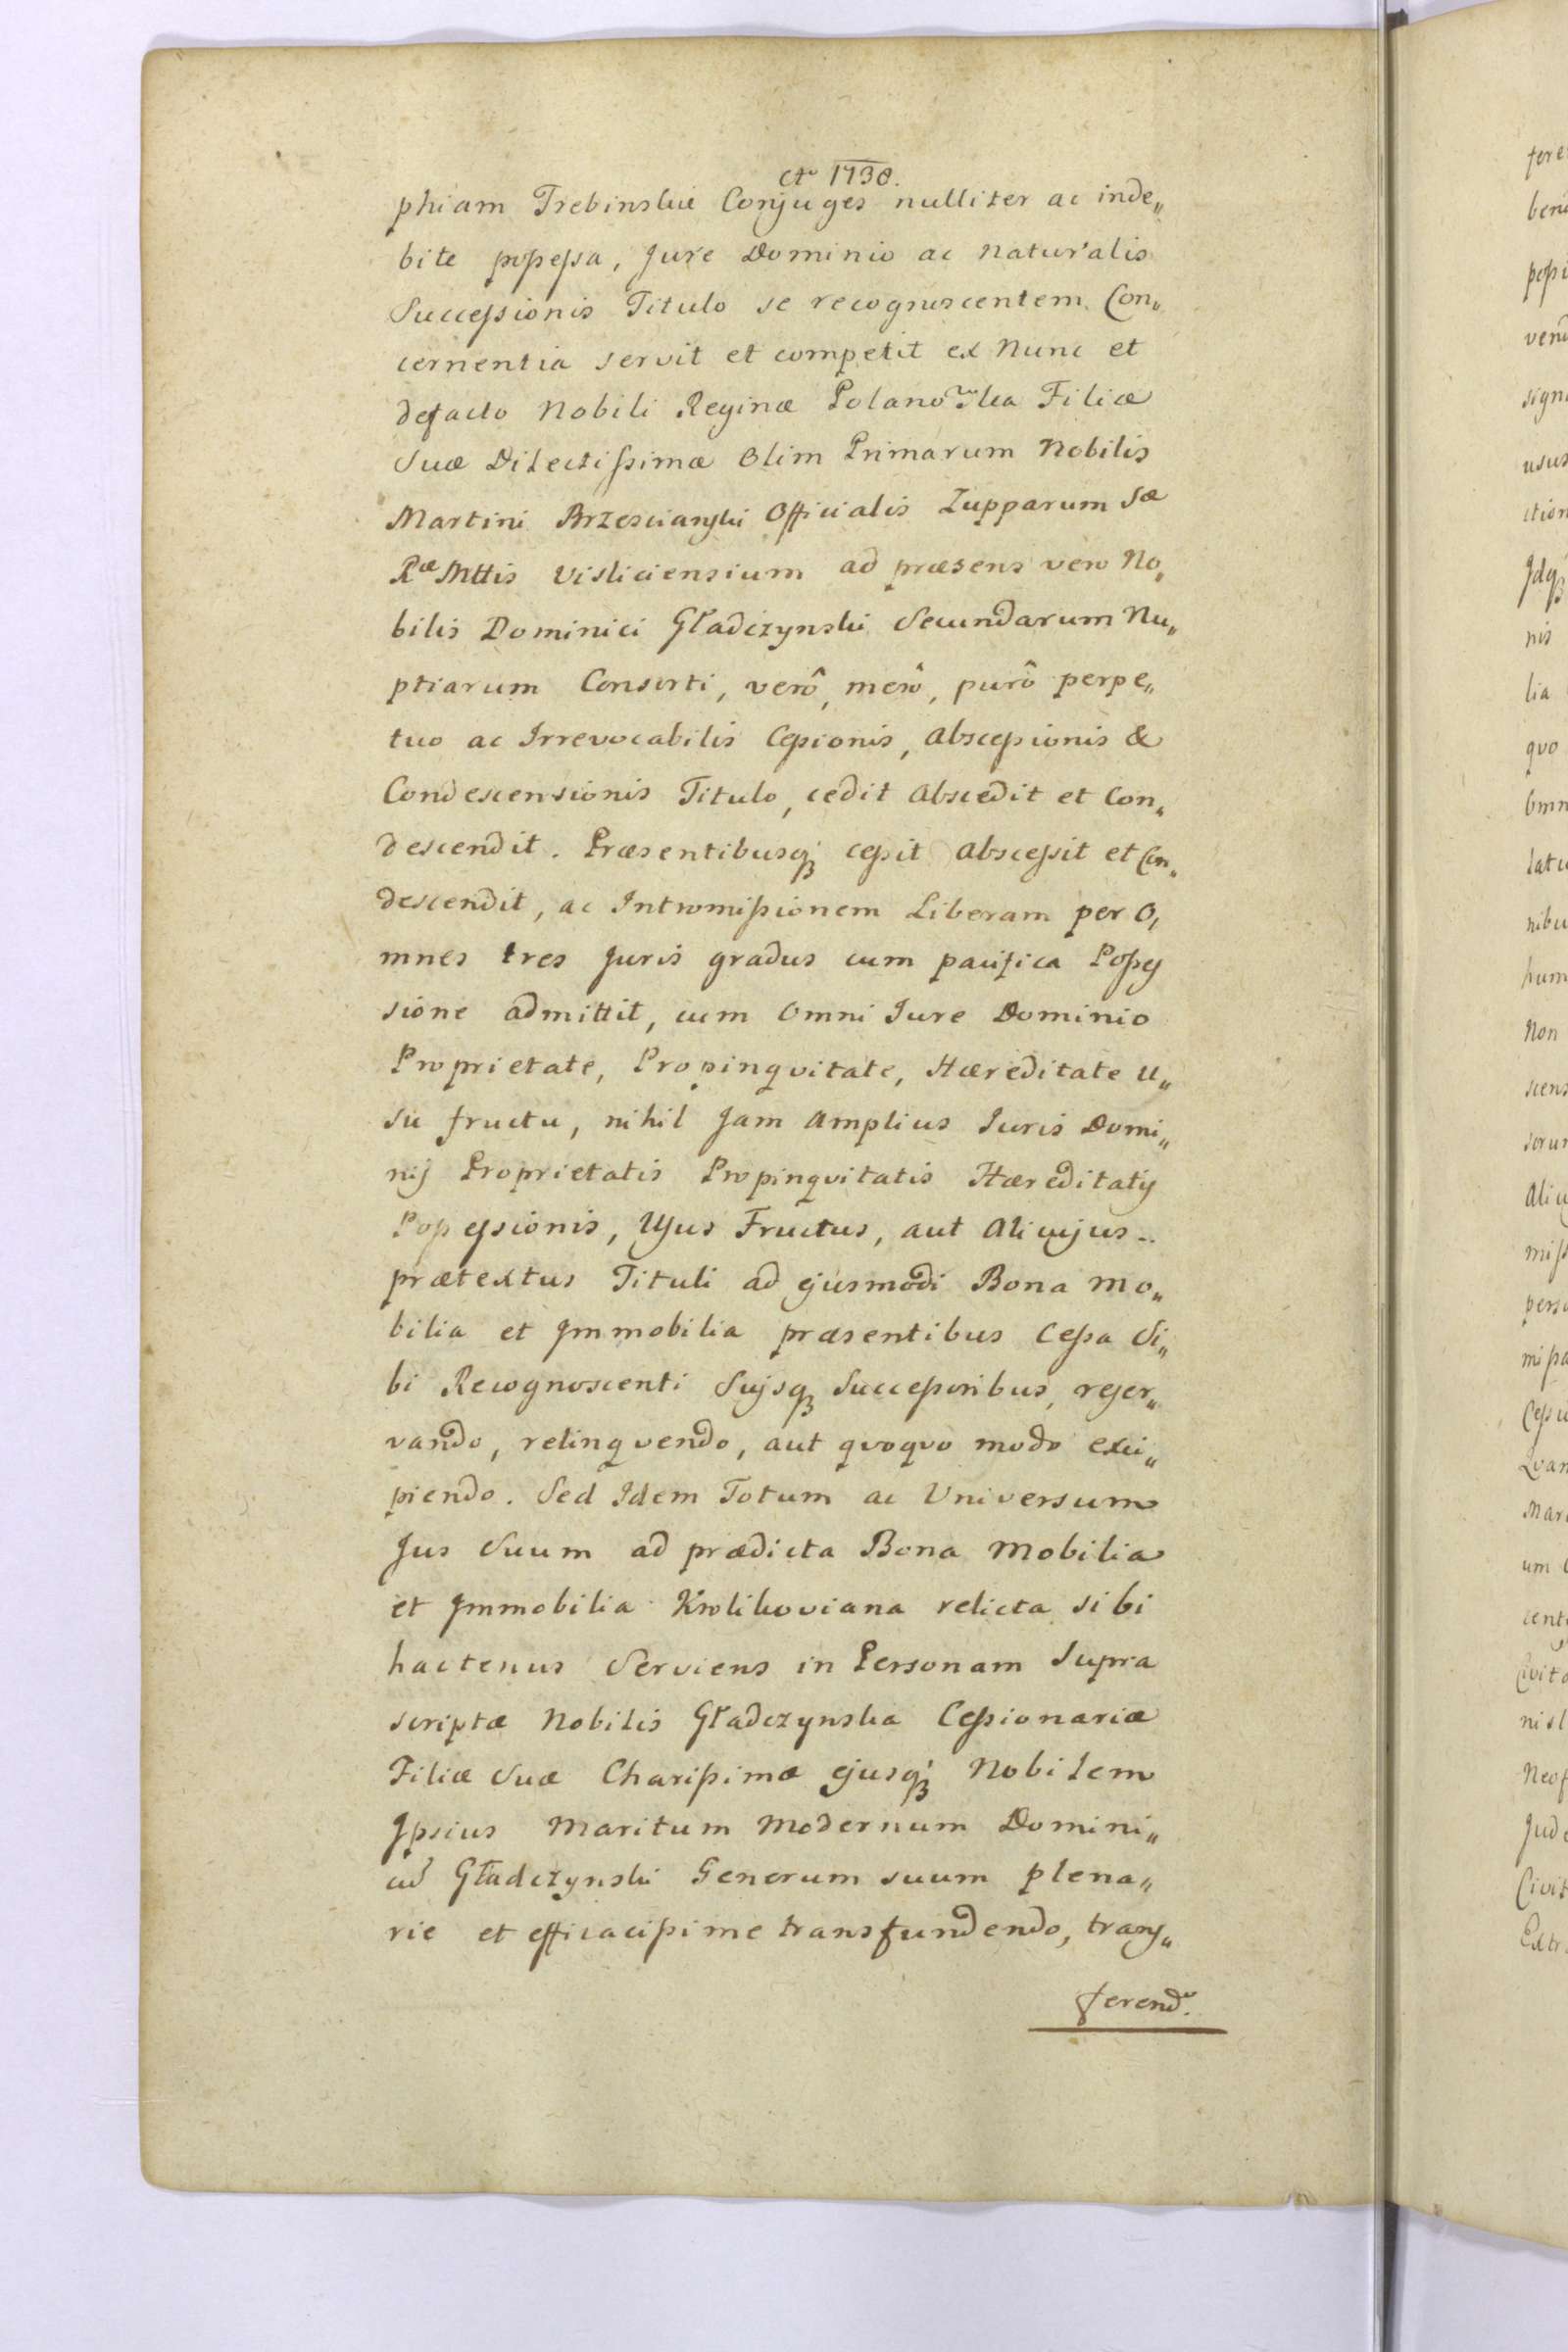 cto 1738.
phiam Trebinskie Conjuges nulliter ac inde„
bite possessa, Jure Dominio ac naturalis
Successionis Titulo se recognoscentem Con„
cernentia servit et competit ex Nunc et
defacto Nobili Reginæ Polanowska Filiæ
Suæ Dilectissimæ Olim Primarum Nobilis
Martini Brzescianski Officialis Zupparum Sæ
Ræ Mttis Visliciensium ad præsens vero No„
bilis Dominici Gładczynski Secundarum Nu„
ptiarum Consorti, verô, merô, purô perpe„
tuo ac Irrevocabilis Cessionis, Abscessionis &
Condescensionis Titulo, cedit Abscedit et Con„
descendit. Præsentibusq; cessit Abscessit et Con„
descendit, ac Intromissionem Liberam per O,
mnes tres Juris gradus cum pacifica Posses
sione admittit, cum Omni Jure Dominio
Proprietate, Propinqvitate, Hæreditate U„
su fructu, nihil Jam Amplius Juris Domi„
nij Proprietatis Propinqvitatis Hæreditatis
Possessionis, Usus Fructus, aut Alicujus
prætextus Tituli ad ejusmodi Bona mo„
bilia et Immobilia præsentibus Cessa Si„
bi Recognoscenti Suisq; Successoribus, reser„
vando, relinqvendo, aut qvoqvo modo exci„
piendo. Sed Idem Totum ac Universum
Jus Suum ad prædicta Bona Mobilia
et Immobilia Krolikoviana relicta sibi
hactenus Serviens in Personam Supra
scriptæ Nobilis Gładczynska Cessionariæ
Filiæ Suæ Charissimæ ejusq; Nobilem
Ipsius Maritum Modernum Domini„
cũ Gładczynski Generum suum plena„
rie et efficacissime transfundendo, trans„
ferendo.